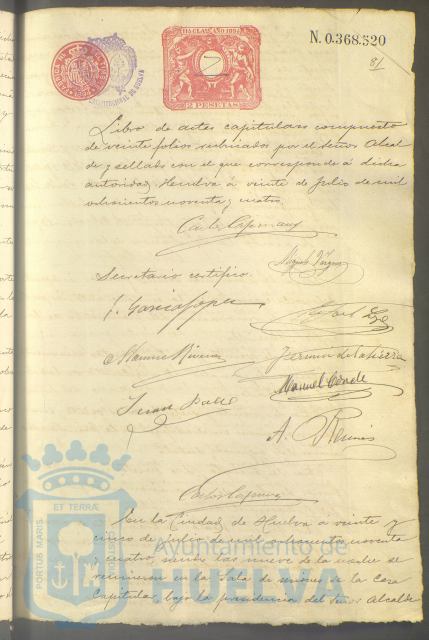 11ª CLASE AÑO 1894
2 PESETAS
N. 0.368.520
81
Libro de actas capitulares compuesto
de veinte folios rubricados por el señor Alcal
de y sellados con el que corresponde á dicha
autoridad. Huelva á veinte de Julio de mil
ochocientos noventa y cuatro.
Secretario certifico.
J. García López
Manuel Conde
Juan
A.
En la Ciudad de Huelva á veinte y
cinco de Julio de mil ochocientos noventa
y cuatro, siendo las nueve de la noche se
reunieron en la Sala de sesiones de la Casa
Capitular, bajo la presidencia del Señor Alcalde
PORTUS MARIS
ET TERRÆ
Ayuntamiento de
HUELVA